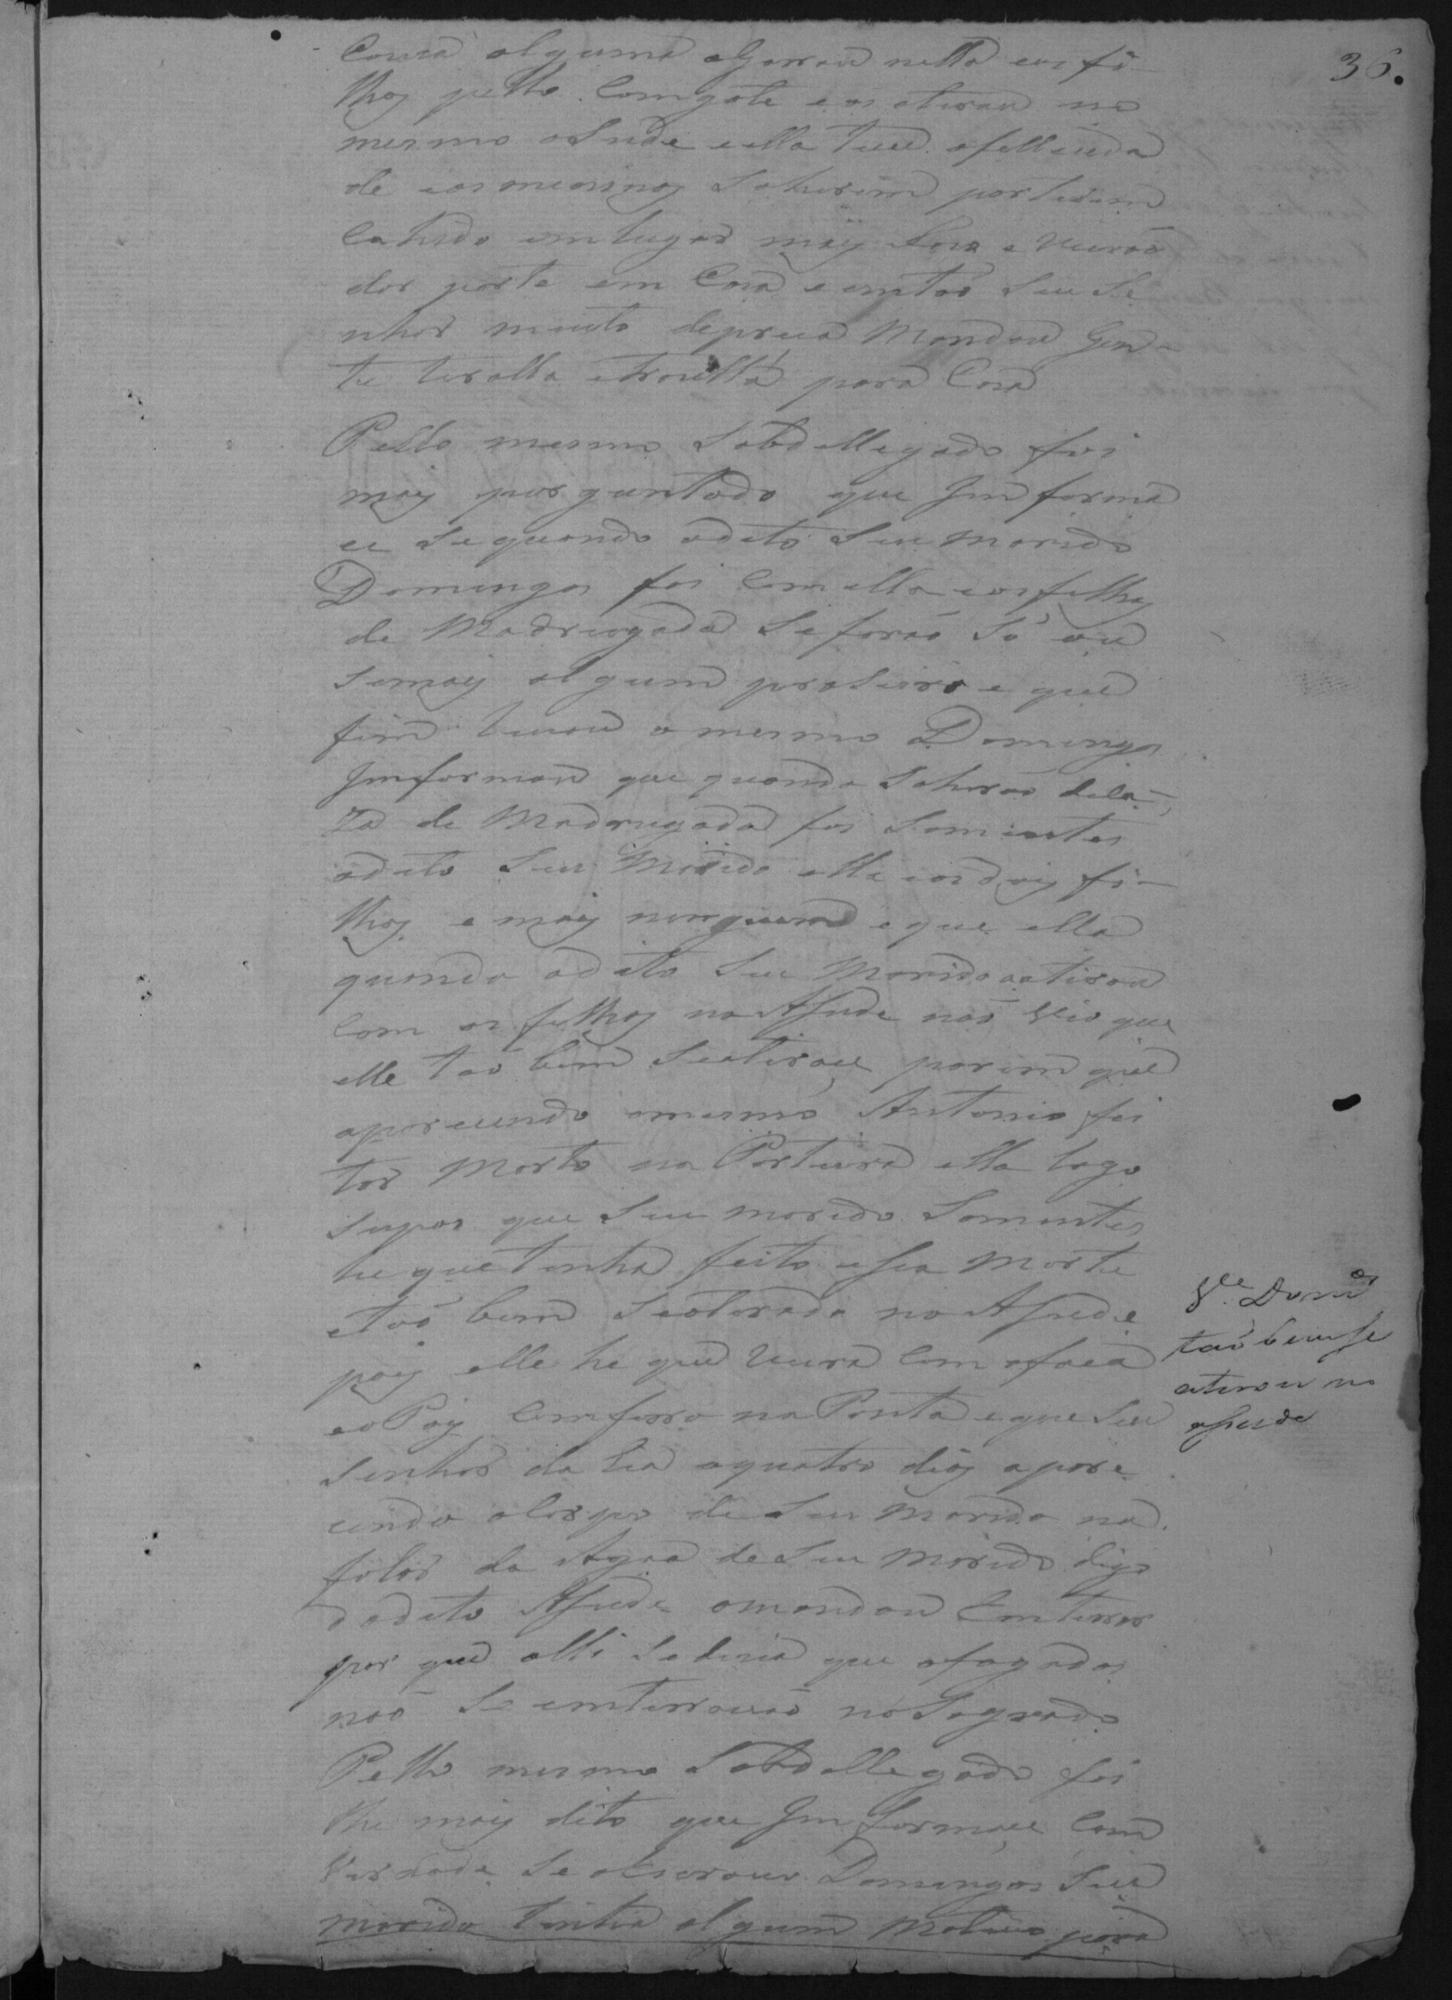 36.
Couza alguma agarrou nella e os fi-
lhos pello Congote e os atirou no
mesmo Asude e ella teve afellicida
de e os meninos Sahirem por terem
Cahido em lugar mais
dor parte em Caza e então Seu Se
nhor muito depreça Mandou Gen-
te tiralla e trouella para Caza
Pello mesmo Sobdellegado foi
mais porguntado que Imforma
ce Se quando o dito Seu marido
Domingos foi Com ella e os filhos
de Madrugada Se forão Só ou
Se mais algum parseiro e que
fim levou o mesmo Domingos
Imformou que quando Sahirão de Ca-
za de Madrugada foi Somentes
o dito Seu Marido ella e os dois fi-
lhos e mais ninguem e que ella
quando o dito Seu Marido a atirou
Com os filhos no Asude não Vio que
elle tão bem Se atirace, porem que
aparecendo o mesmo Antonio fei
tor Morto na Porteira ella logo
supos que Seu marido Somentes
he que tinha feito essa Morte
e tão bem Se atirado no Asude
pois elle he que viera Com a faca
e o Pao Com ferro na Ponta e que Seu
Senhor da hia a quatro dias apare
cendo o Corpo de Seu Marido na
folor da Agoa de Seu Marido digo
do dito Asude o mandou Emterrar
por que alli Se dizia que afogados
não Se emterravão no Sagrado
Pello mesmo Sobdellegado foi
lhe mais dito que Imformace Com
Verdade Se o escravo Domingos Seu
marido tinha algum Motivo para
Ve. Domos
tão bem se
atirou no
asude